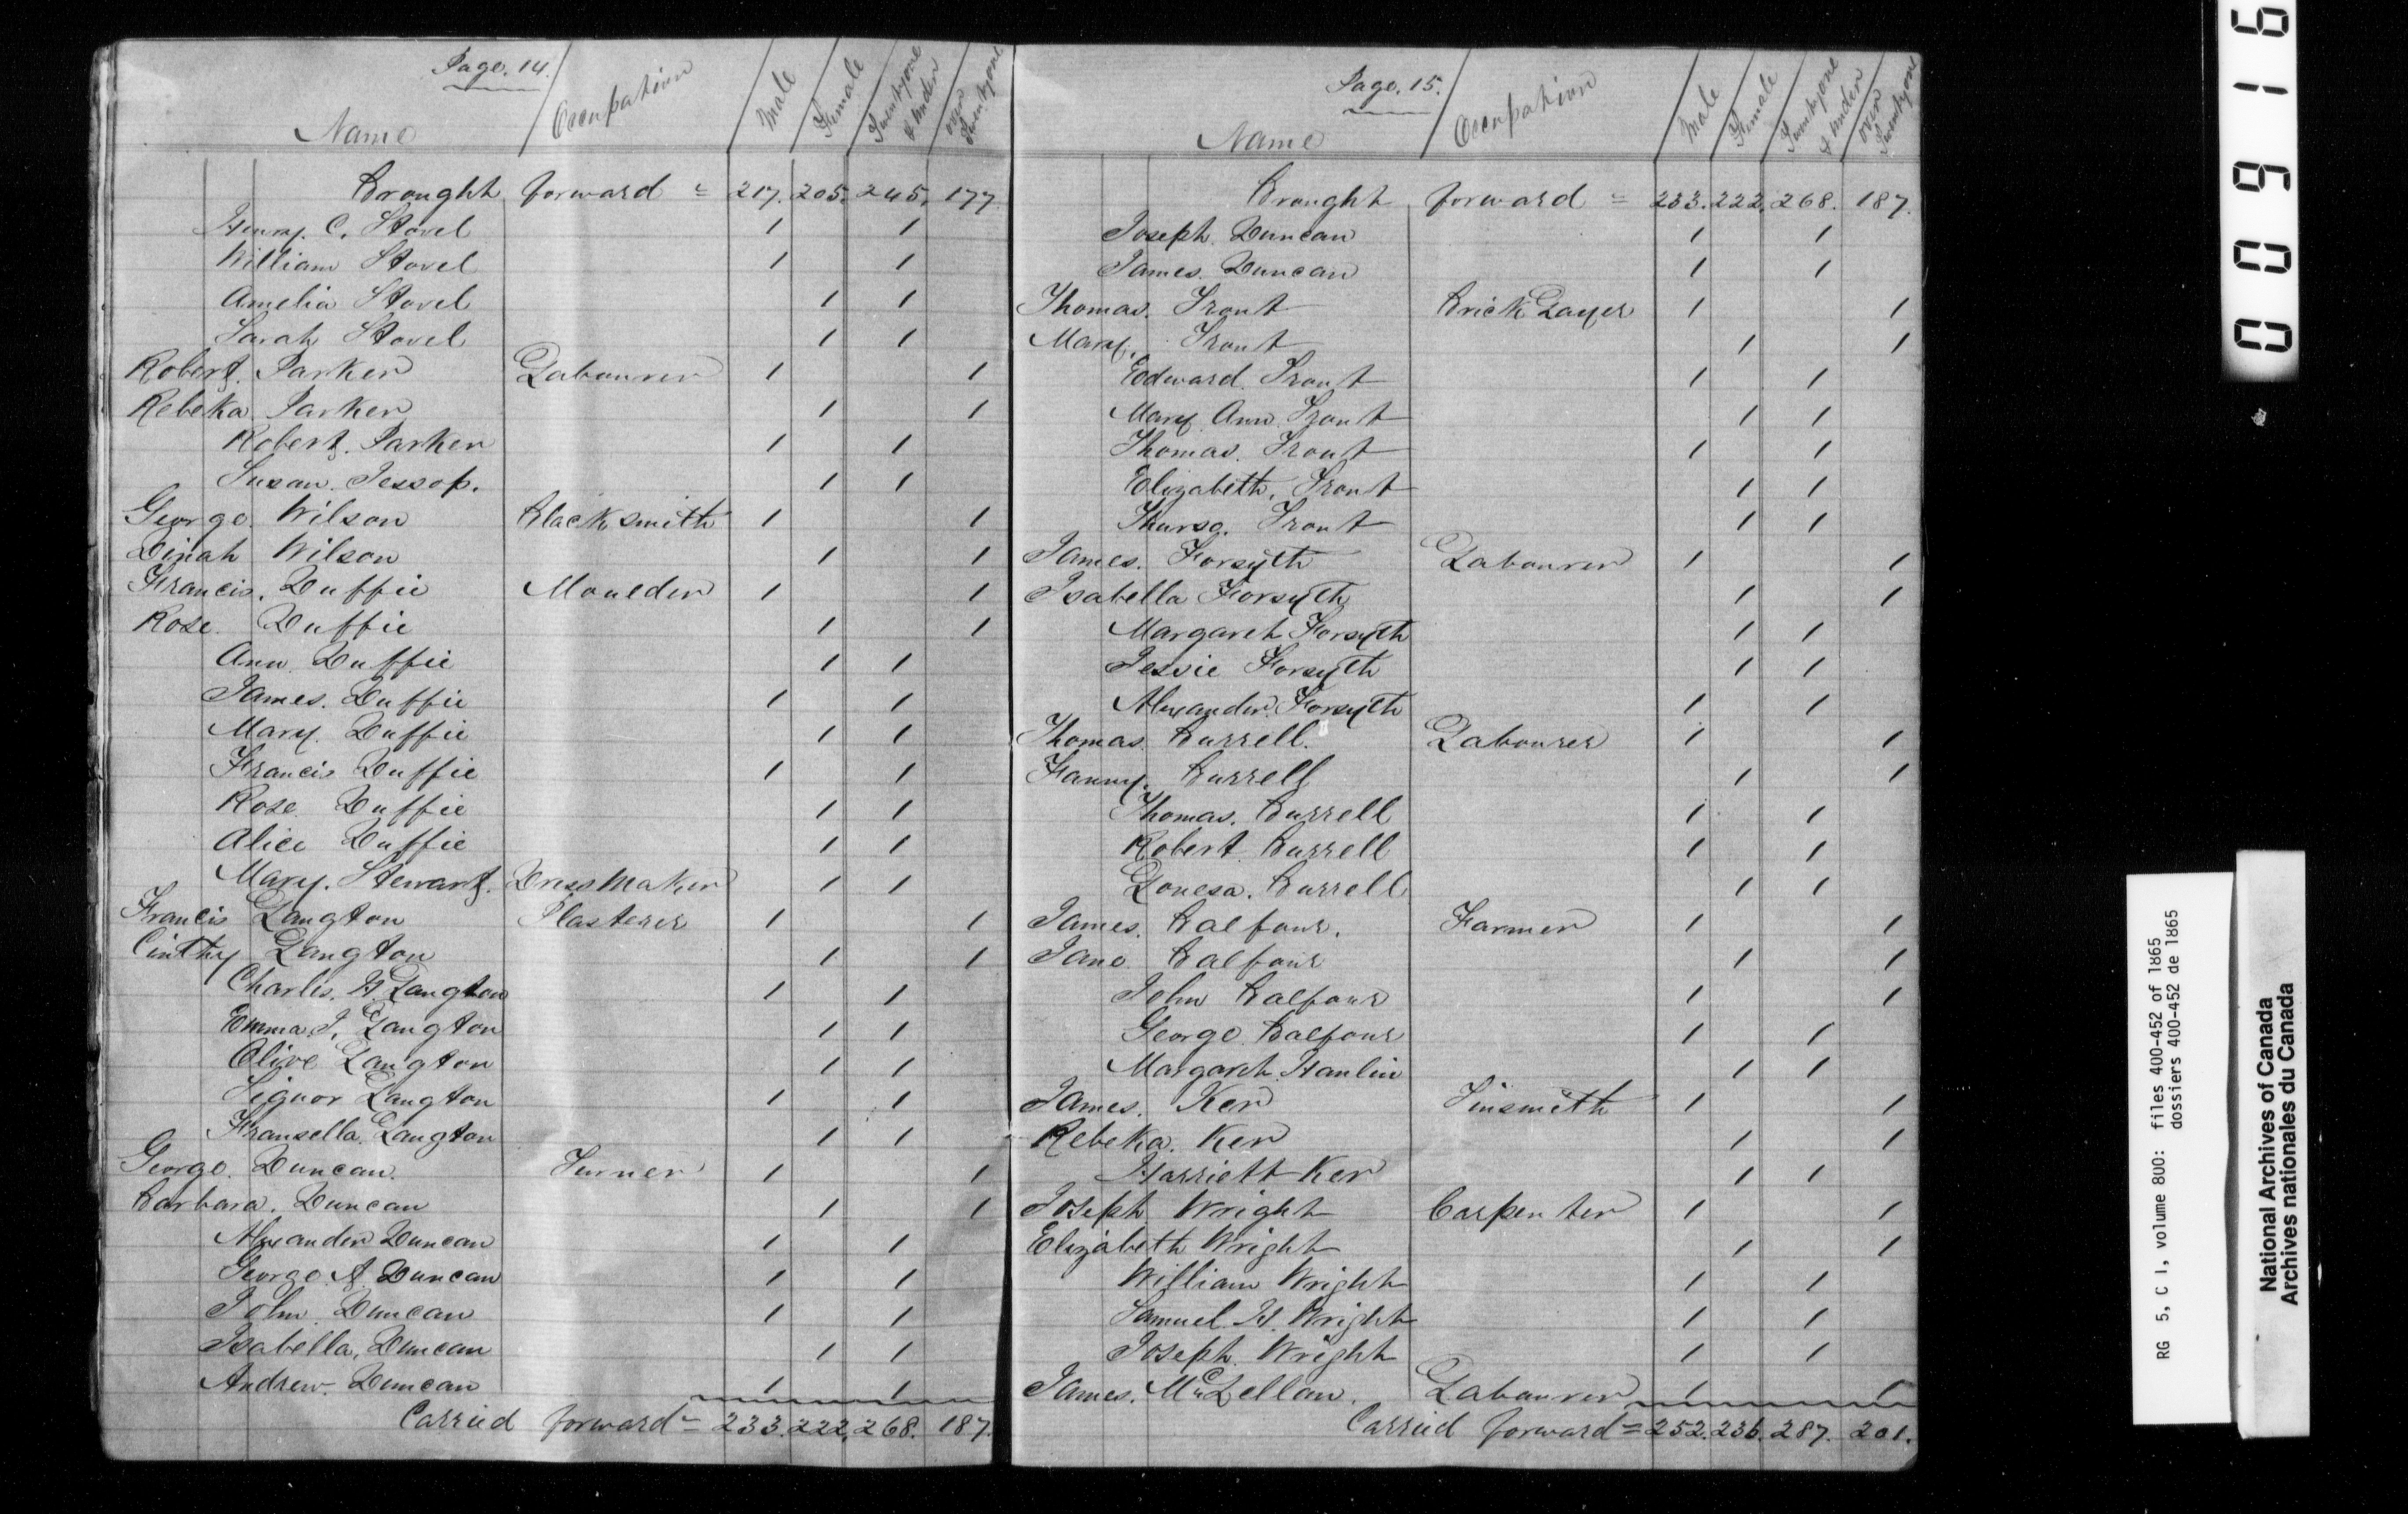 Page. 14.
Name Occupation Male Female Twentyone & Under over Twentyone
Brought forward = 217. 205. 245. 177
Henry. C. Stovel 1 1
William Stovel 1 1
Amelia Stovel 1 1
Sarah Stovel 1 1
Robert. Parker Labourer 1 1
Rebeka Parker 1 1
Robert. Parker 1 1
Susan. Jessop. 1 1
George. Wilson Blacksmith 1 1
Dinah Wilson 1 1
Francis. Duffie Moulder 1 1
Rose Duffie 1 1
Ann Duffie 1 1
James. Duffie 1 1
Mary. Duffie 1 1
Francis Duffie 1 1
Rose Duffie 1 1
Alice Duffie 1 1
Mary. Stewart. Dressmaker 1 1
Francis Langton Plasterer 1 1
Cinthy Langton 1 1
Charles. H. Langton 1 1
Emma J. Langton 1 1
Olive Langton 1 1
Signor Langton 1 1
Fransella. Langton 1 1
George. Duncan. Turner 1 1
Barbara. Duncan 1 1
Alexander Duncan 1 1
George. A. Duncan 1 1
John. Duncan 1 1
Isabella. Duncan 1 1
Andrew. Duncan 1 1
Carried forward = 233. 222. 268. 187.
Page. 15.
Name Occupation Male Female Twentyone & Under over Twentyone
Brought forward = 233. 222. 268. 187.
Joseph Duncan 1 1
James. Duncan 1 1
Thomas. Trout Brick Layer 1 1
Mary. Trout 1 1
Edward. Trout 1 1
Mary Ann Trout 1 1
Thomas. Trout 1 1
Elizabeth. Trout 1 1
Thursa. Trout 1 1
James. Forsyth Labourer 1 1
Isabella Forsyth 1 1
Margaret Forsyth 1 1
Jessie Forsyth 1 1
Alexander. Forsyth 1 1
Thomas Burrell. Labourer 1 1
Fanny. Burrell 1 1
Thomas. Burrell 1 1
Robert Burrell 1 1
Louesa. Burrell 1 1
James. Balfour. Farmer 1 1
Jane Balfour 1 1
John Balfour 1 1
George Balfour 1 1
Margaret Hanlin 1 1
James. Ker Tinsmith 1 1
Rebeka. Ker 1 1
Harriett Ker 1 1
Joseph Wright Carpenter 1 1
Elizabeth Wright 1 1
William Wright 1 1
Samuel. H. Wright 1 1
Joseph. Wright 1 1
James. McLellan. Labourer 1 1
Carried forward = 252. 236. 287. 201.
00916
RG 5, C 1, volume 800: files 400-452 of 1865
dossiers 400-452 de 1865
National Archives of Canada
Archives nationales du Canada